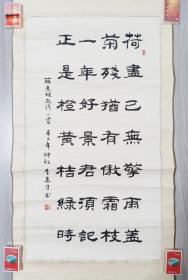 荷盡已無擎雨蓋
菊殘猶有傲霜枝
一年好景君須記
正是橙黃桔綠時
蘇東坡 年仲秋 書